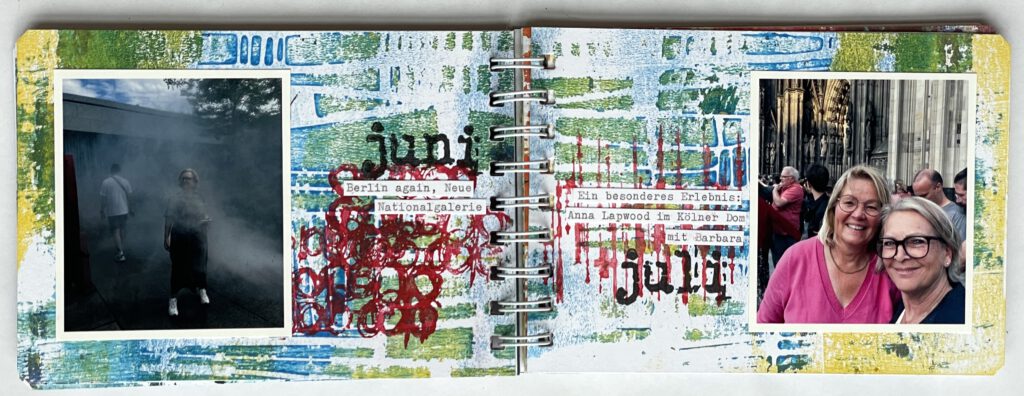 juni
Berlin again, Neue
Nationalgalerie
Ein besonderes Erlebnis:
Anna Lapwood im Kölner Dom
mit Barbara
juli